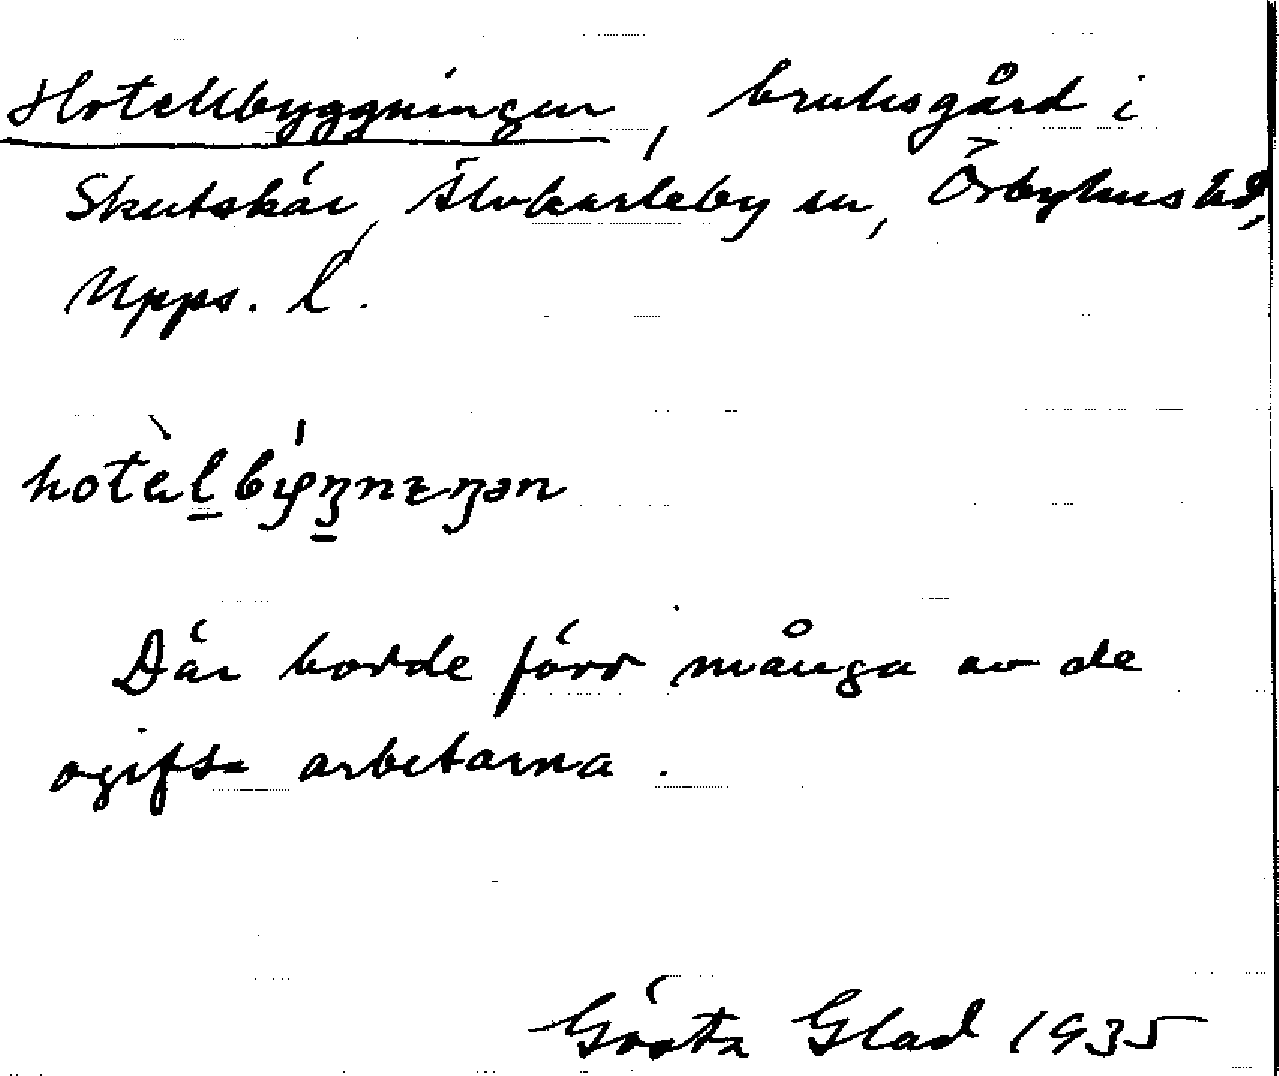 Hotellbyggningen, bruksgård i
Skutskär, Älvkarleby sn, Örbyhus hd,
Upps. l.
Där bodde förr många av de
ogifta arbetarna.
Gösta Glad 1935